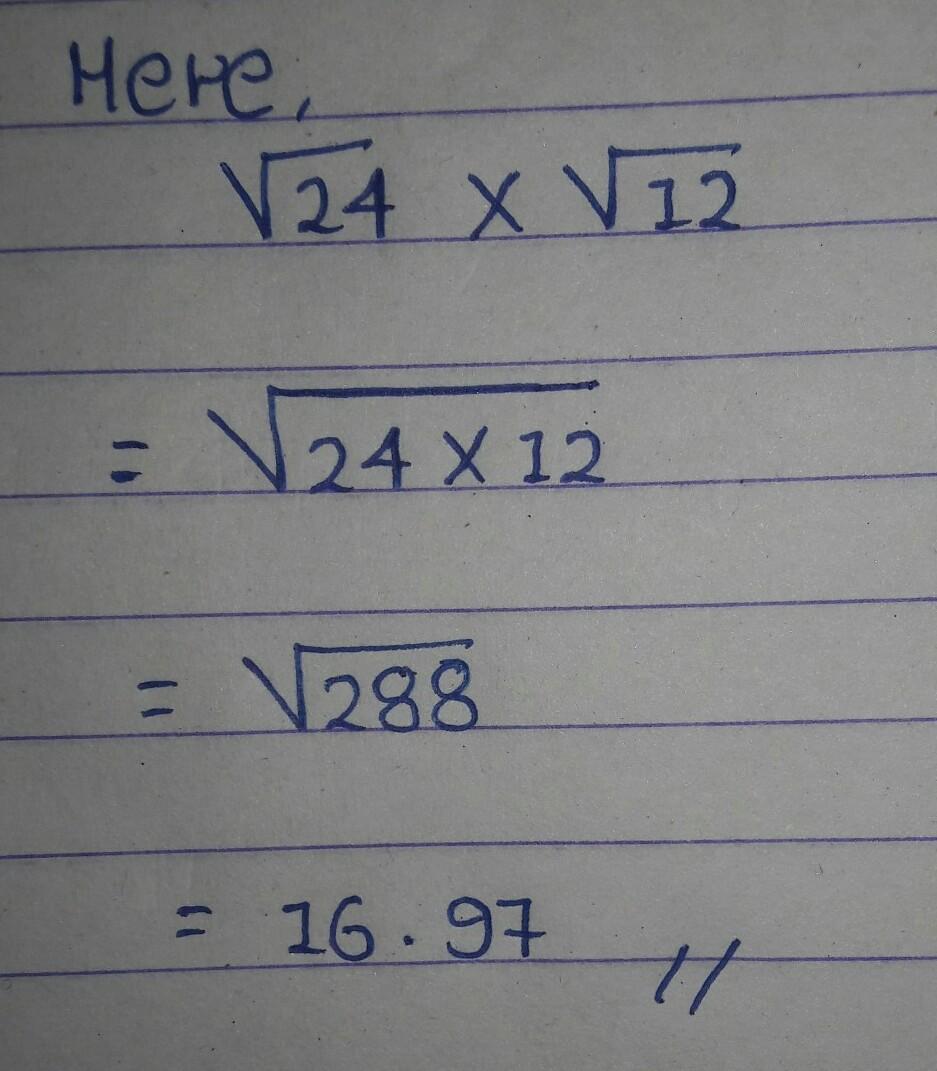 Here,
√24 × √12
= √24 × 12
= √288
= 16.97 //